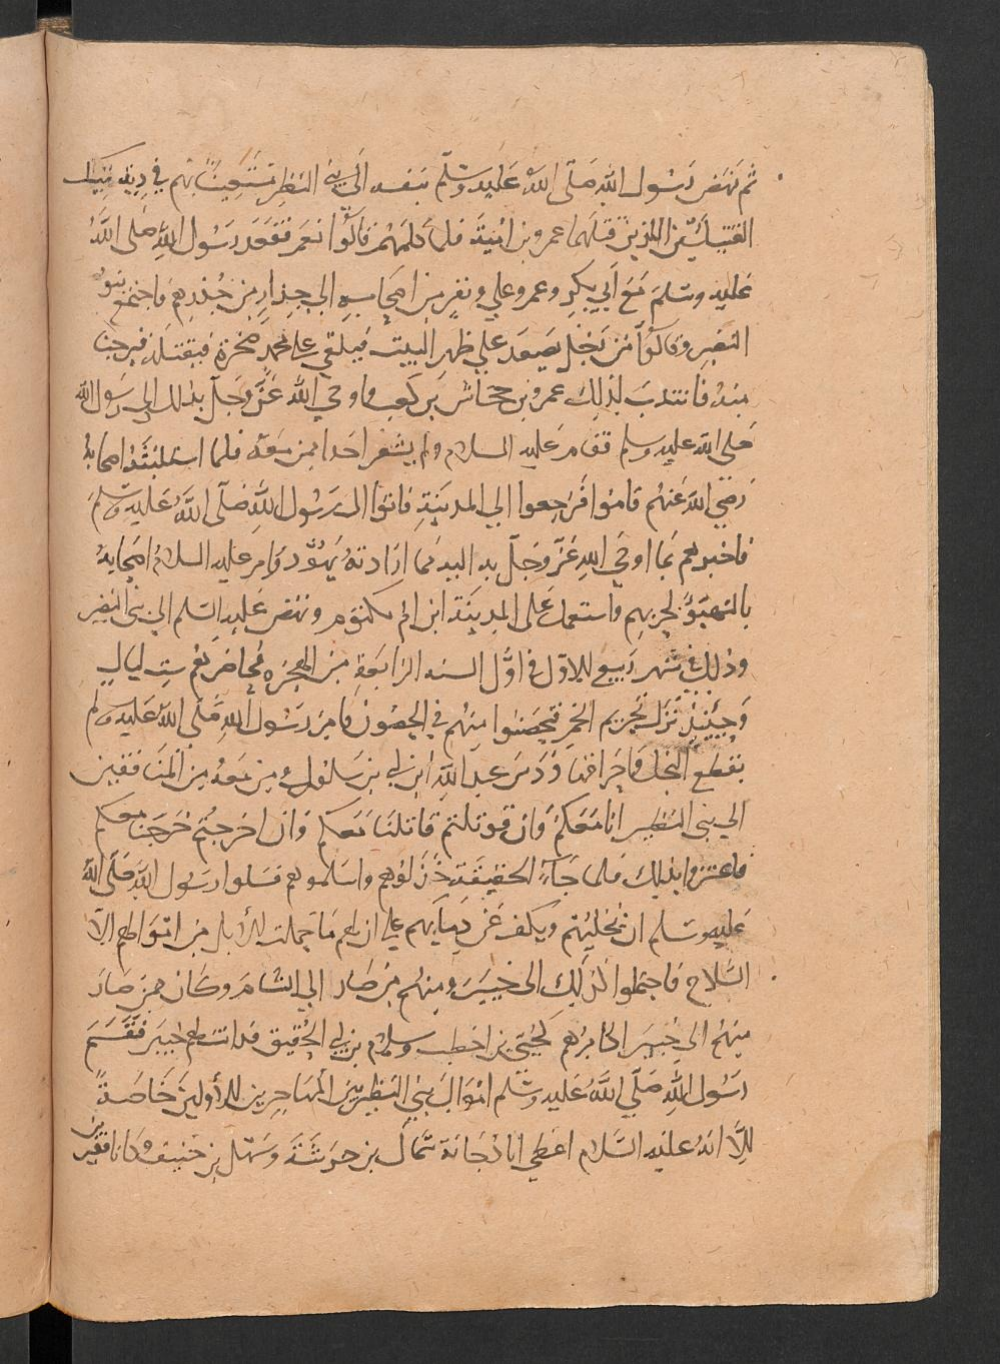 ثم نهض رسول الله صلى الله عليه وسلم بنفسه الى بني النظر مستعينا بهم في دية
القتيلين اللذين قتلهما عمرو بن امية فلما كلمهم قالوا نعم فقعد رسول الله صلى الله
عليه وسلم مع ابي بكر وعمر وعلي ونفر من اصحابه الي جدار من جدرهم فاجتمع بنو
النضير وقالوا من رجل يصعد علي ظهر البيت فيلقي على محمد صخرة فيقتله فيرحنا
منه فانتدب لذلك عمرو بن جحاش بن كعب فاوحي الله عز وجل بذلك الي رسول الله
صلى الله عليه وسلم فقام عليه السلام ولم يشعر احدا ممن معه فلما استلبثه اصحابه
رضي الله عنهم قاموا فرجعوا الي المدينة فاتوا الى رسول الله صلى الله عليه وسلم
فاخبرهم بما اوحي الله عز وجل به اليه مما ارادته يهود وامر عليه السلام اصحابه
بالتهيؤ لحربهم واستعمل على المدينة ابن ام مكتوم ونهض عليه السلم الي بني النضير
وذلك في شهر ربيع للاول في اول السنه الرابعة من الهجره فحاصرهم ست ليال
وحينئذ نزل تحريم الخمر فتحصنوا منهم في الحصون فامر رسول الله صلى الله عليه وسلم
بقطع النخل واحراقها ودس عبد الله ابن ابي بن سلول ومن معه من المنافقين
الي بني النظير انا معكم وان قوتلتم قاتلنا معكم وان اخرجتم خرجنا معكم
فاعتزوا بذلك فلما جاءت الحقيقة خذلوهم واسلموهم فسلوا رسول الله صلى الله
عليه وسلم ان يخليهم ويكف عن دمايهم علي ان لهم ما حملت للابل من اموالهم الا
السلاح فاحتملوا لذلك الى خيبر ومنهم من صار الي الشام وكان ممن صار
منهم الي خيبر اكابرهم كحيي بن اخطب وسلام بن ابي الحقيق فدانت لهم خيبر فقسم
رسول الله صلى الله عليه وسلم اموال بني النظير بين المهاجرين للاولين خاصة
للا انه عليه السلام اعطي ابا دجانة سماك بن خرشة وسهل بن حنيف وكانا فقيرين